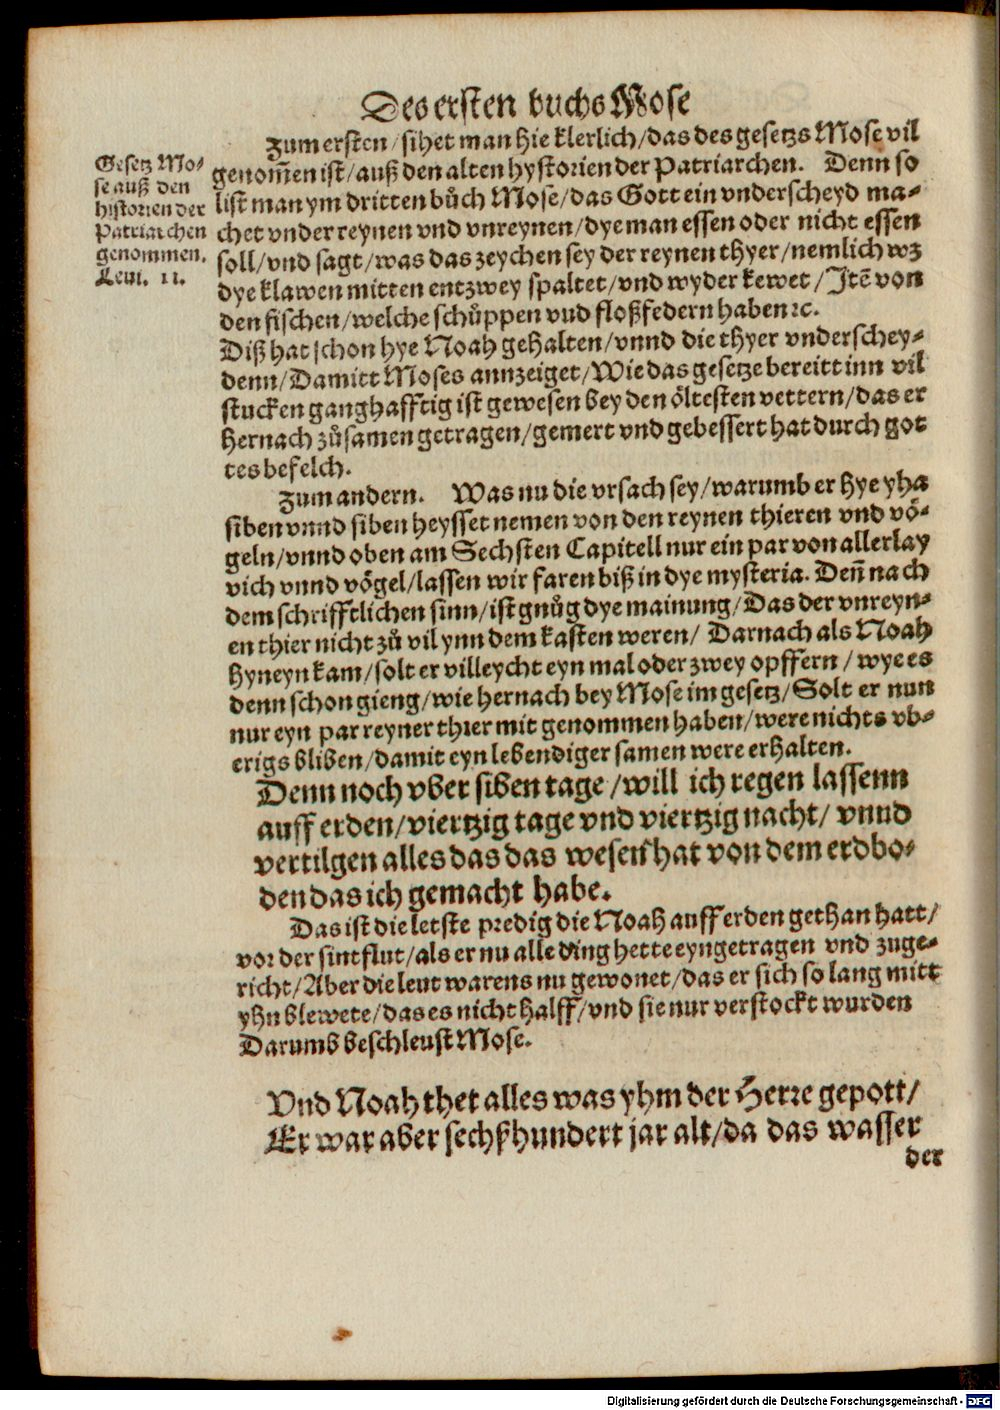 Des ersten buchs Mose
Zum ersten / sihet man hie klerlich / das des gesetzs Mose vil
genom̃en ist / auß den alten hystorien der Patriarchen. Denn so
list man ym dritten bůch Mose / das Gott ein vnderscheyd ma-
chet vnder reynen vnd vnreynen / dye man essen oder nicht essen
soll / vnd sagt / was das zeychen sey der reynen thyer / nemlich wz
dye klawen mitten entzwey spaltet / vnd wyder kewet / Jtẽ von
den fischen / welche schůppen vnd floßfedern haben ⁊c.
Diß hat schon hye Noah gehalten / vnnd die thyer vnderschey-
denn / Damitt Moses annzeiget / Wie das gesetze bereitt inn vil
stucken ganghafftig ist gewesen bey den öltesten vettern / das er
hernach zůsamen getragen / gemert vnd gebessert hat durch got
tes befelch.
Gesetz Mo-
se auß den
historien der
Patriarchen
genommen.
Leui. 11.
Zum andern. Was nu die vrsach sey / warumb er hye yha
siben vnnd siben heysset nemen von den reynen thieren vnd vö-
geln / vnnd oben am Sechsten Capitell nur ein par von allerlay
vich vnnd vögel / lassen wir faren biß in dye mysteria. Deñ nach
dem schrifftlichen sinn / ist gnůg dye mainung / Das der vnreyn-
en thier nicht zů vil ynn dem kasten weren / Darnach als Noah
hyneyn kam / solt er villeycht eyn mal oder zwey opffern / wye es
denn schon gieng / wie hernach bey Mose im gesetz / Solt er nun
nur eyn par reyner thier mit genommen haben / were nichts vb-
erigs bliben / damit eyn lebendiger samen were erhalten.
Denn noch vber siben tage / will ich regen lassenn
auff erden / viertzig tage vnd viertzig nacht / vnnd
vertilgen alles das das wesen hat von dem erdbo-
den das ich gemacht habe.
Das ist die letste predig die Noah auff erden gethan hatt /
vor der sintflut / als er nu alle ding hette eyngetragen vnd zuge-
richt / Aber die leut warens nu gewonet / das er sich so lang mitt
yhn blewete / das es nicht halff / vnd sie nur verstockt wurden
Darumb beschleust Mose.
Vnd Noah thet alles was yhm der Herre gepott /
Er war aber sechßhundert jar alt / da das wasser
der
Digitalisierung gefördert durch die Deutsche Forschungsgemeinschaft - DFG